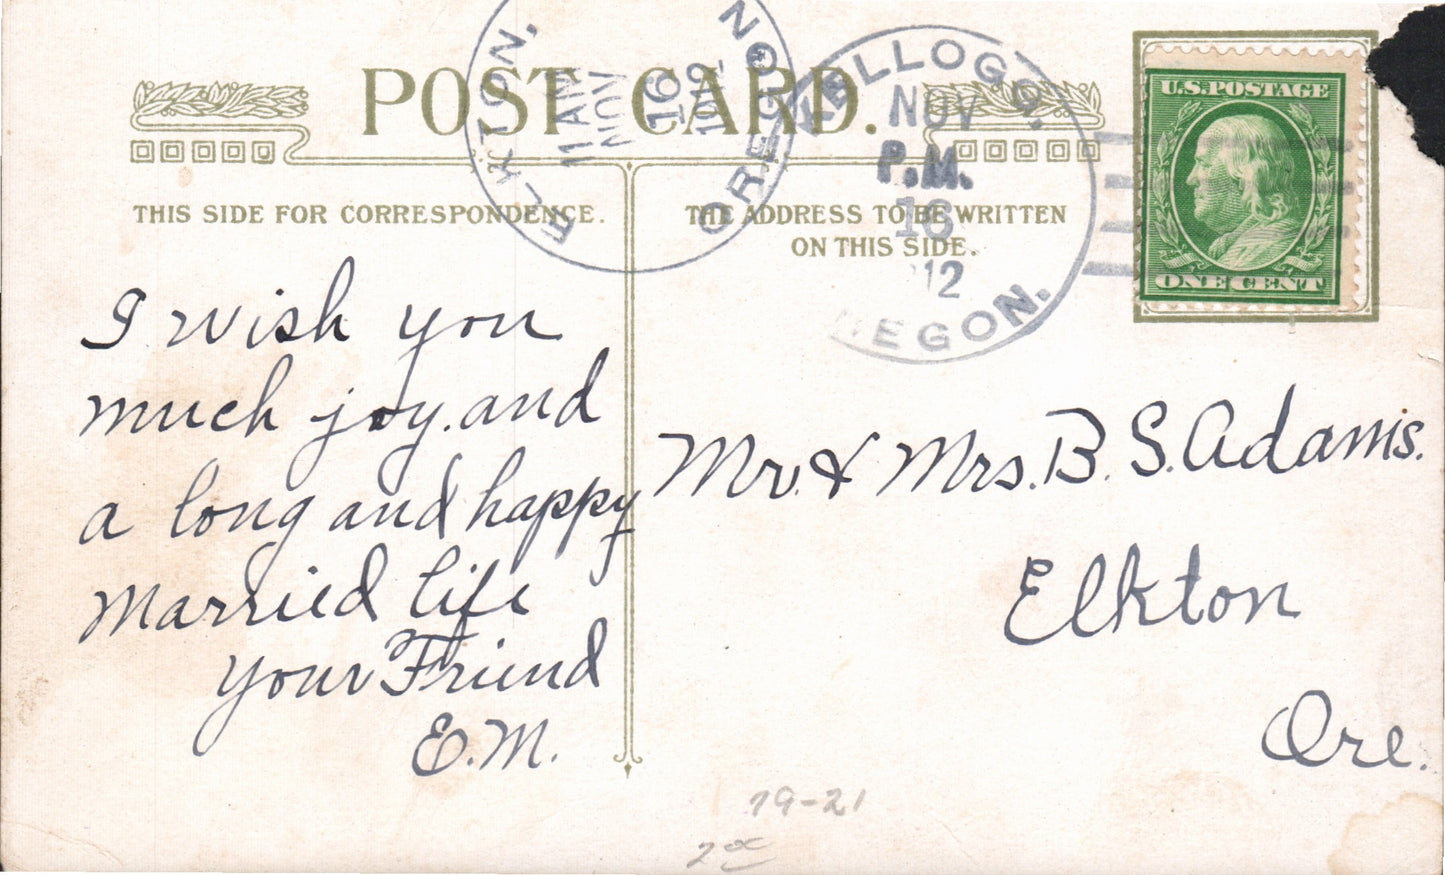 POST CARD.
ELKTON,
11 AM
NOV
16
1912
OREGON
KELLOGG,
NOV
P.M.
16
'12
OREGON.
U.S. POSTAGE
ONE CENT
THIS SIDE FOR CORRESPONDENCE.
THE ADDRESS TO BE WRITTEN
ON THIS SIDE.
I wish you
much joy. and
a long and happy
Married life
your Friend
E.M.
Mr. & Mrs. B. S. Adams.
Elkton
Ore.
19-21